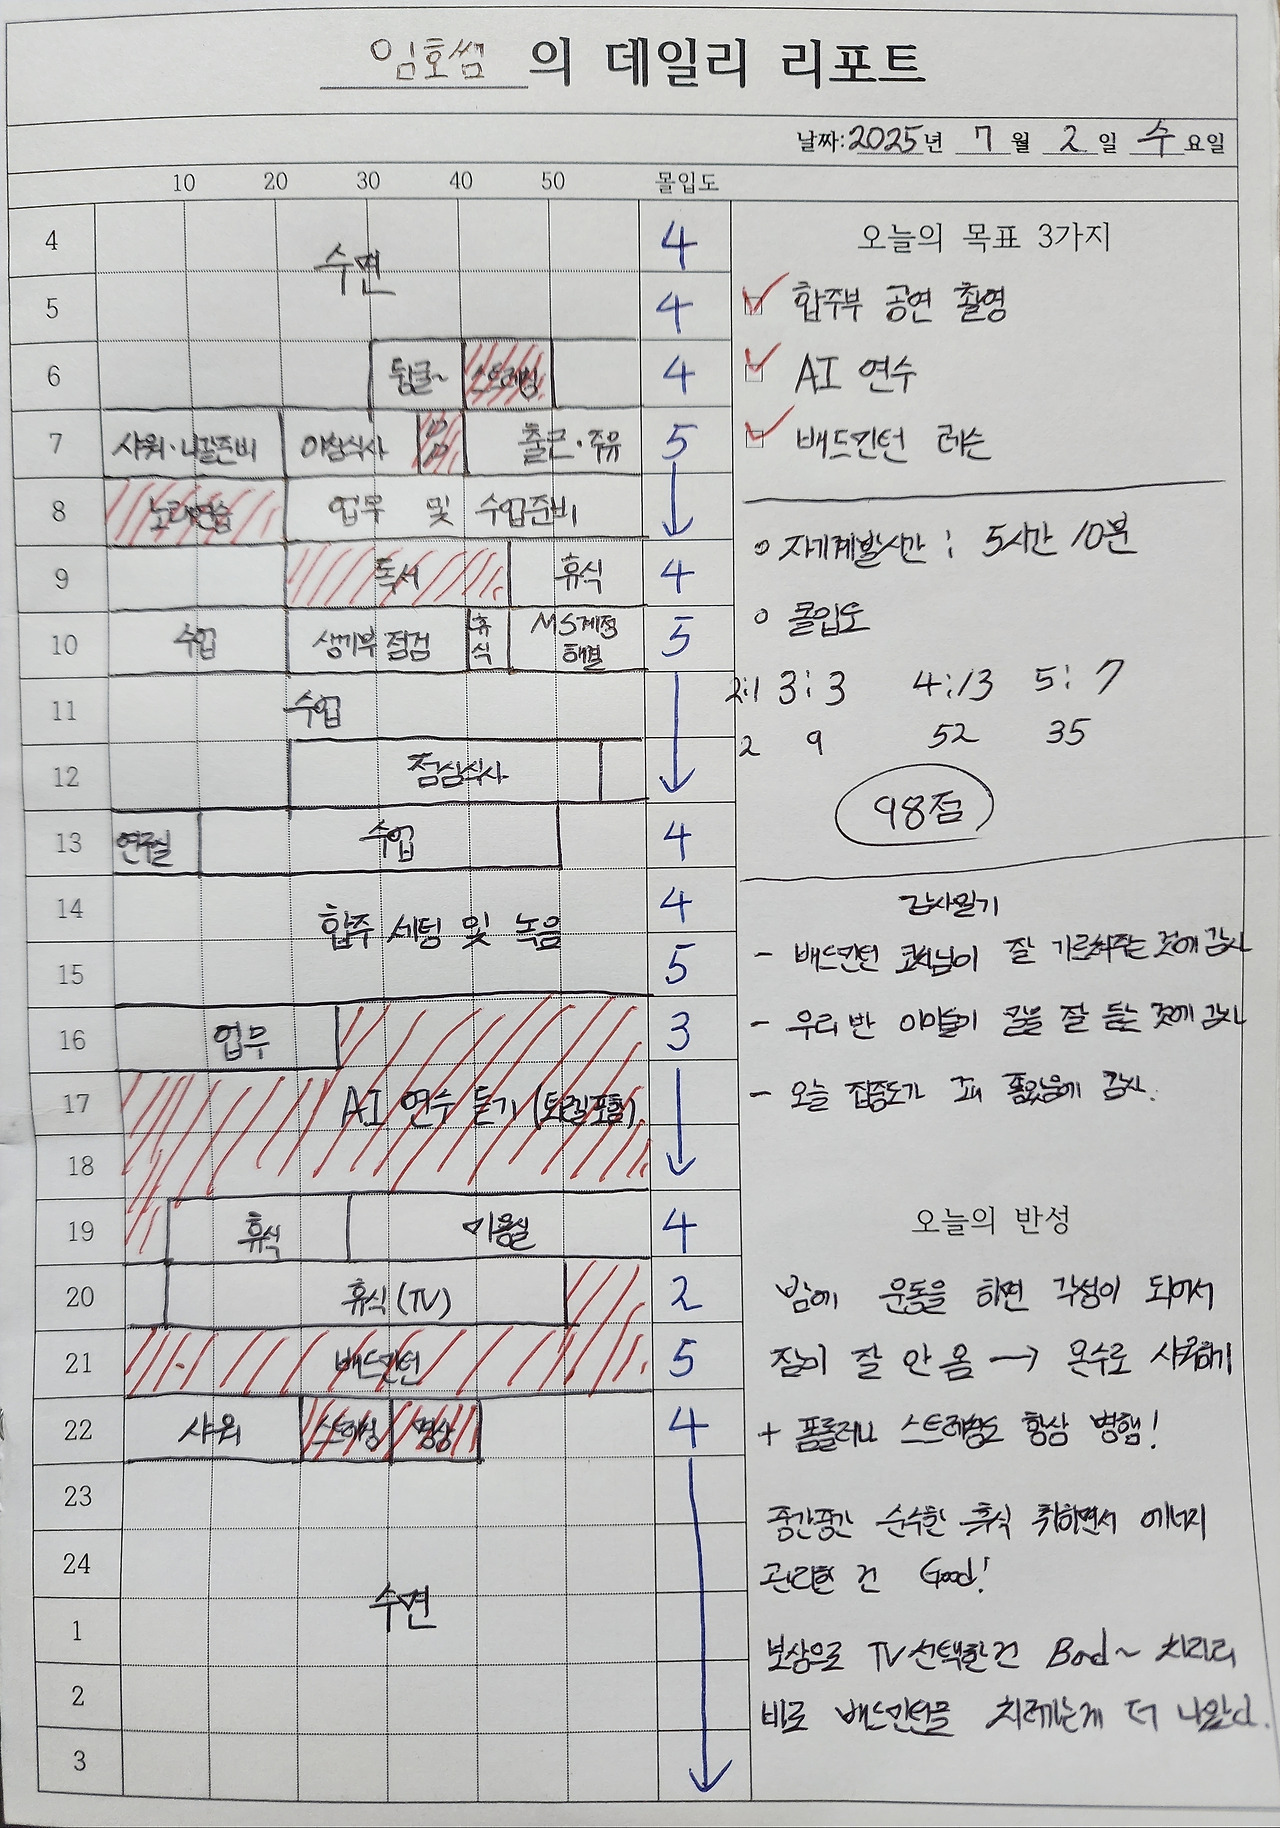 임호쌤 의 데일리 리포트
날짜: 2025년 7월 2일 수요일
10 20 30 40 50 몰입도
4 수면 4
5 4
6 뒹굴~ 스트레칭 4
7 샤워·나갈준비 아침식사 출근·주유 5
8 노래연습 업무 및 수업준비
9 독서 휴식 4
10 수업 생기부 점검 휴식 MS계정 해결 5
11 수업
12 점심식사
13 연주실 수업 4
14 합주 세팅 및 녹음 4
15 5
16 업무 3
17 AI 연수 듣기 (퇴길포함)
18
19 휴식 미용실 4
20 휴식(TV) 2
21 배드민턴 5
22 샤워 스트레칭 명상 4
23
24
수면
1
2
3
오늘의 목표 3가지
합주부 공연 촬영
AI 연수
배드민턴 레슨
자기계발시간 : 5시간 10분
몰입도
2:1 3:3 4:13 5:7
2 9 52 35
98점
감사일기
- 배드민턴 코치님이 잘 가르쳐주는 것에 감사
- 우리반 아이들이 말을 잘 듣는 것에 감사
- 오늘 집중도가 꽤 좋았음에 감사.
오늘의 반성
밤에 운동을 하면 각성이 되어서
잠이 잘 안 옴 → 온수로 샤워하기
+ 폼롤러나 스트레칭도 항상 병행!
중간중간 순수한 휴식 취하면서 에너지
관리한 건 Good!
보상으로 TV 선택한건 Bad~ 차라리
바로 배드민턴을 치러가는게 더 나았다.